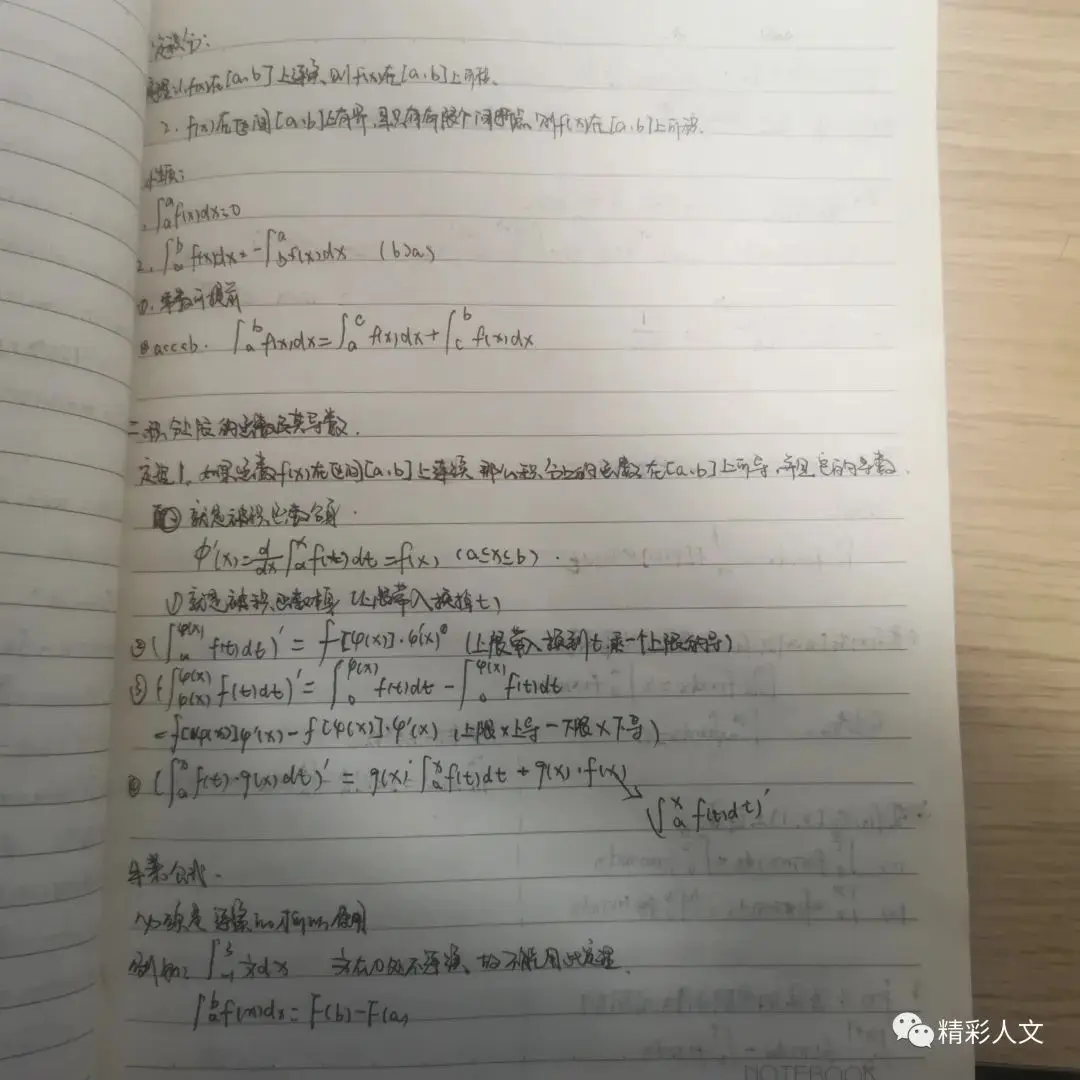 定积分:
定理:1.f(x)在[a,b]上连续,则f(x)在[a,b]上可积.
2. f(x)在区间[a,b]上有界,且只有有限个间断点,则f(x)在[a,b]上可积.
1. ∫ₐᵃf(x)dx=0
2. ∫ₐᵇf(x)dx=-∫_b^a f(x)dx (b>a)
①. 常数可提前
② a<c<b. ∫ₐᵇf(x)dx=∫ₐᶜf(x)dx+∫_c^b f(x)dx
二.积分上限的函数及其导数.
定理1.如果函数f(x)在区间[a,b]上连续,那么积分上的函数在[a,b]上可导,并且它的导数
就是被积函数本身.
Φ'(x)=d/dx∫ₐˣf(t)dt=f(x) (a≤x≤b).
①就是被积函数本身(上限带入换掉t)
②(∫ₐ^φ(x) f(t)dt)'=f[φ(x)]·φ'(x) (上限带入换到t,乘一个上限的导)
③(∫_φ(x)^φ(x) f(t)dt)'=∫₀^φ(x) f(t)dt-∫₀^φ(x) f(t)dt
=f[φ(x)]φ'(x)-f[φ(x)]·φ'(x) (上限×上导-下限×下导)
④(∫ₐˣf(t)·g(x)dt)'=g(x)'∫ₐˣf(t)dt+g(x)·f(x)
(∫ₐˣf(t)dt)'
牛莱公式.
必须是连续的才可以使用
例如: ∫₋₁ dx 在0处不连续,故不能用此定理.
∫ₐᵇf(x)dx=F(b)-F(a)
精彩人文
NOTEBOOK